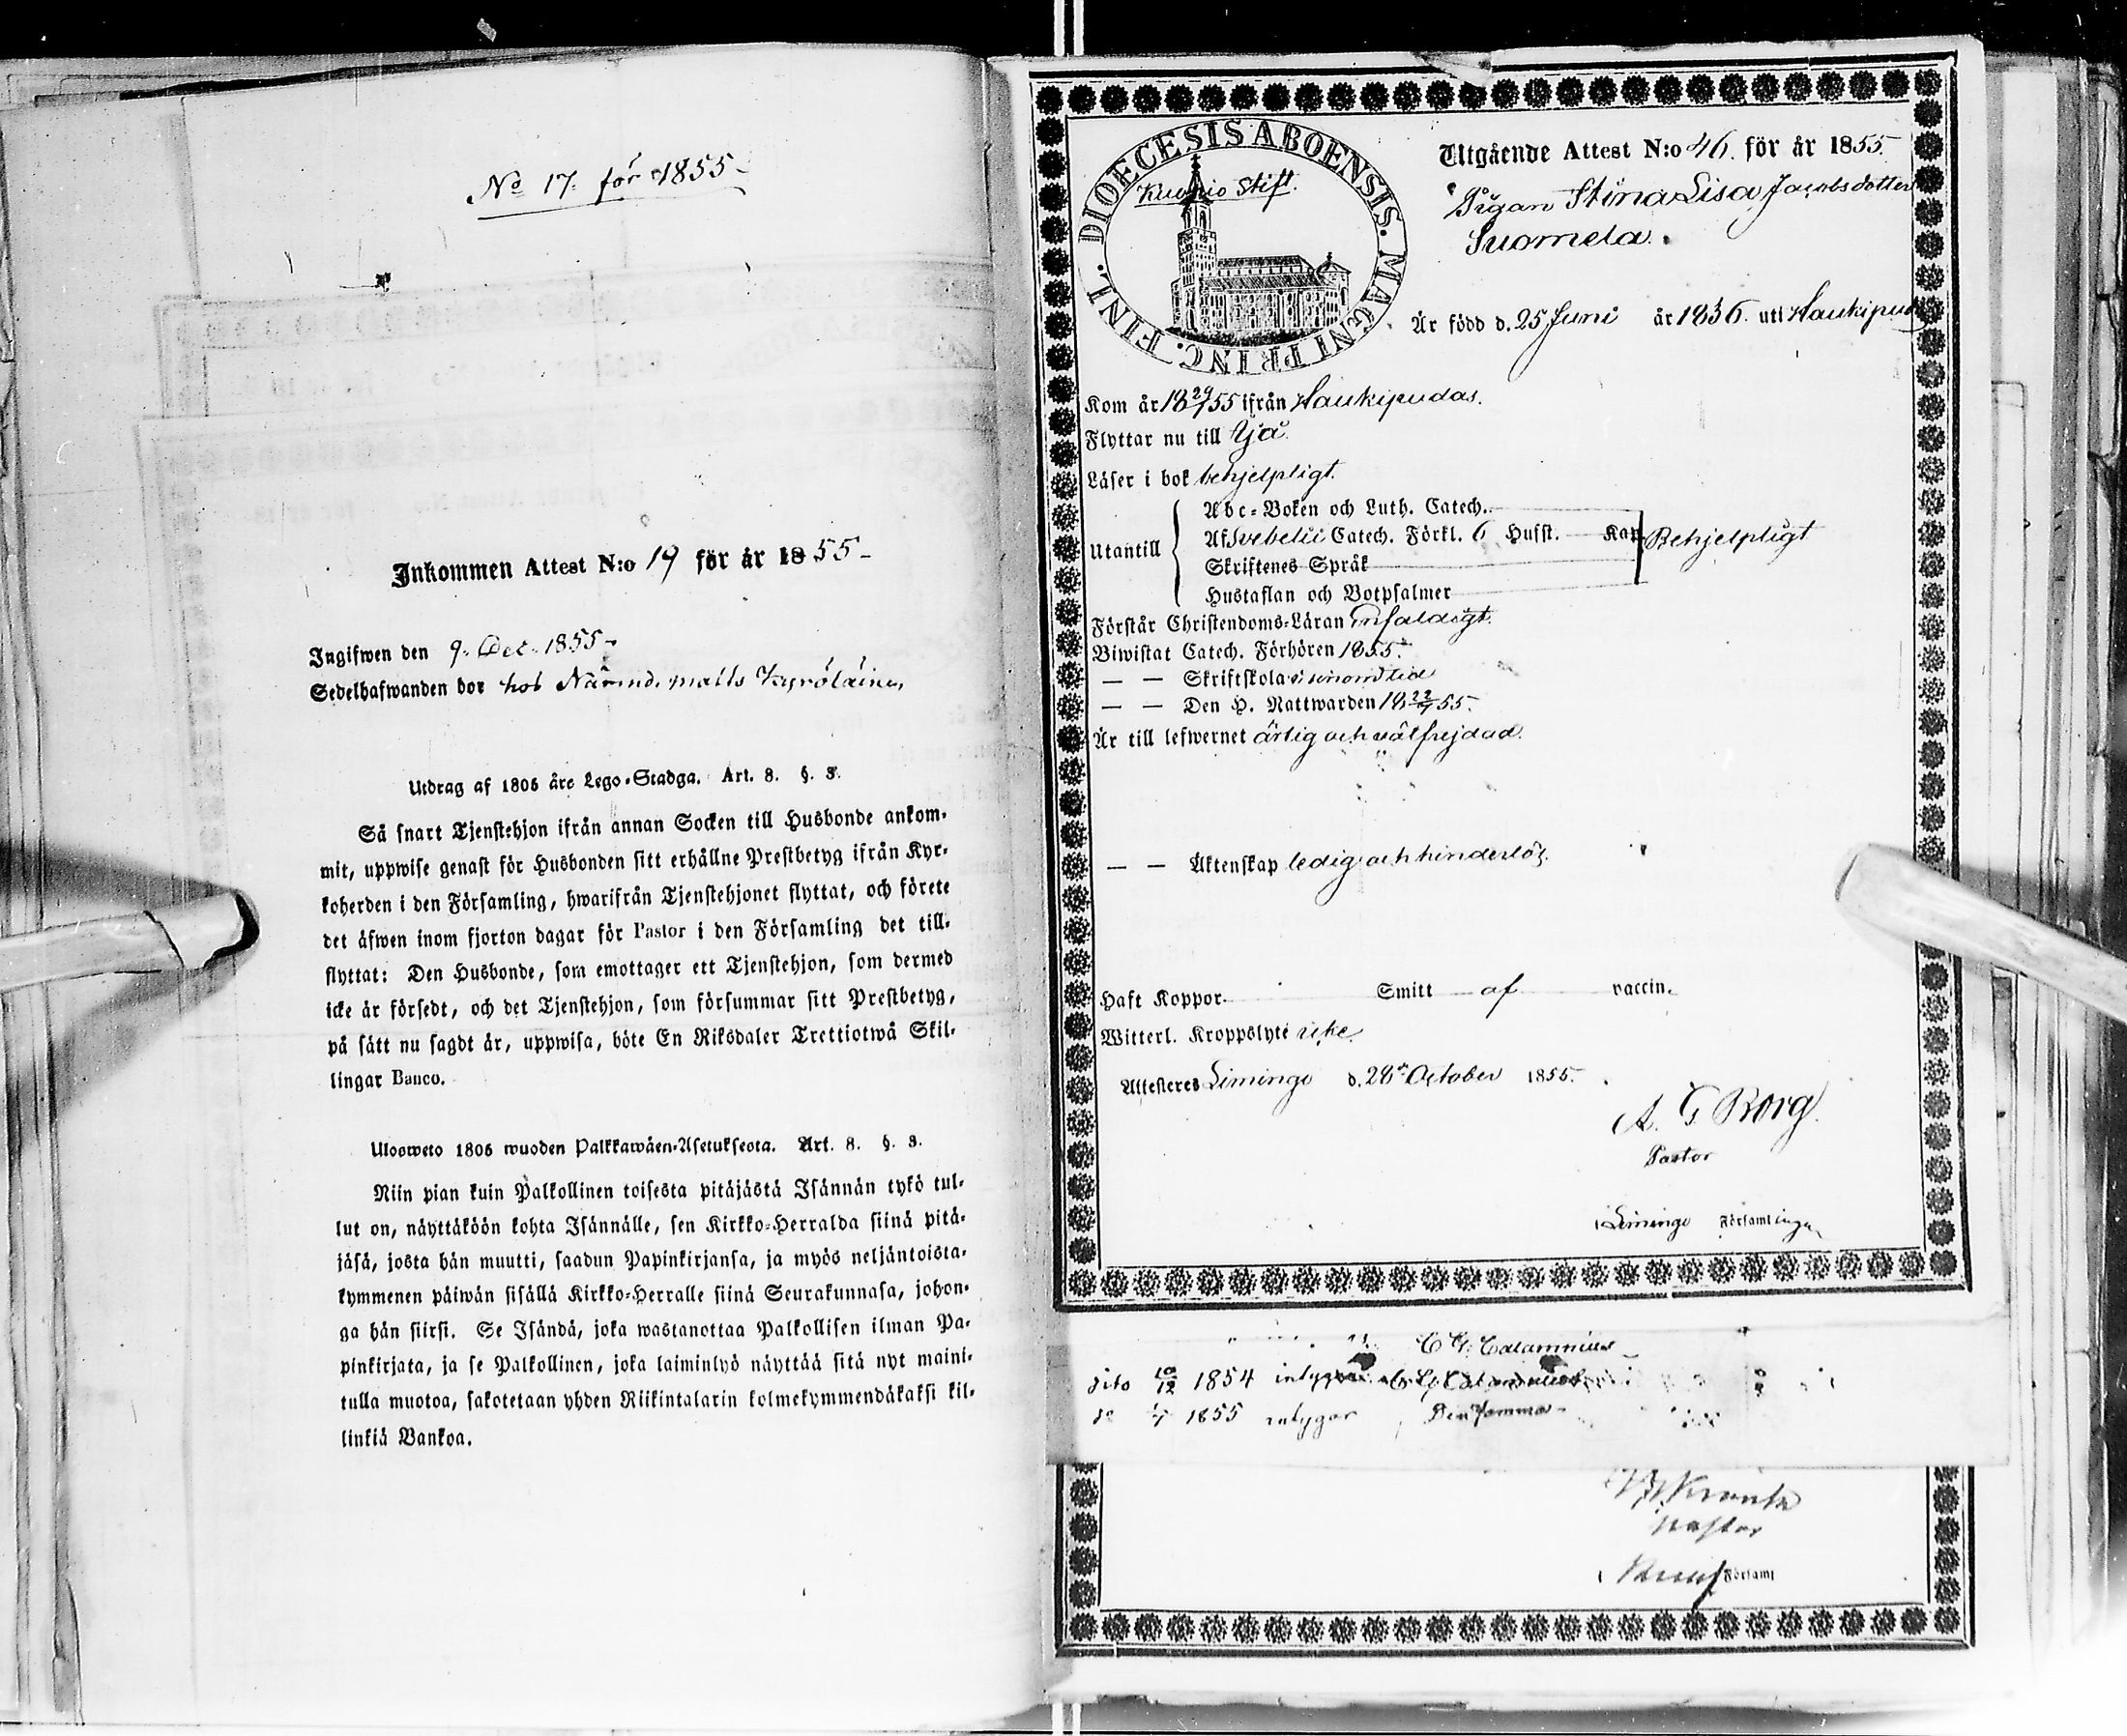 No 17. för 1855
Inkommen Attest N:o 19 för år 1855
Ingifwen den 9. Dec. 1855
Sedelhafwanden bor hos Matts Kyröläinen
Utdrag af 1805 års Lego-Stadga. Art. 8. §. 3.
Så snart Tjenstehjon ifrån annan Socken till Husbonde ankom-
mit, uppwise genast för Husbonden sitt erhållne Prestbetyg ifrån Kyr-
koherden i den Församling, hwarifrån Tjenstehjonet flyttat, och förete
det äfwen inom fjorton dagar för Pastor i den Församling det till-
flyttat: Den Husbonde, som emottager ett Tjenstehjon, som dermed
icke är försedt, och det Tjenstehjon, som försummar sitt Prestbetyg,
på sätt nu sagdt är, uppwisa, böte En Riksdaler Trettiotwå Skil-
lingar Banco.
Ulosweto 1805 wuoden Palkkawäen-Asetuksesta. Art. 8. §. 3.
Niin pian kuin Palkollinen toisesta pitäjästä Isännän tykö tul-
lut on, näyttäköön kohta Isännälle, sen Kirkko-Herralda siinä pitä-
jäsä, josta hän muutti, saadun Papinkirjansa, ja myös neljäntoista-
kymmenen päiwän sisällä Kirkko-Herralle siinä Seurakunnasa, johon-
ga hän siirsi. Se Isändä, joka wastanottaa Palkollisen ilman Pa-
pinkirjata, ja se Palkollinen, joka laiminlyö näyttää sitä nyt maini-
tulla muotoa, sakotetaan yhden Riikintalarin kolmekymmendäkaksi kil-
linkiä Bankoa.
DIOECESIS ABOENSIS. MAGNI PRINC. FINL.
Kuopio Stift.
Utgående Attest N:o 46. för år 1855.
Pigan Stina Lisa Jacobsdotter
Suomela.
Är född d. 25 Juni år 1836. uti Haukipud
Kom år 18 29/7 55 ifrån Haukipudas.
Flyttar nu till Ijå
Läser i bok behjelpligt.
Utantill
Abc-Boken och Luth. Catech.
Af Svebelii Catech. Förkl. 6 Husst. Kap. Behjelpligt
Skriftenes Språk
Hustaflan och Botpsalmer
Förstår Christendoms-Läran enfaldigt.
Biwistat Catech. Förhören 1855.
— — Skriftskola i sinom tid
— — Den H. Nattwarden 18 22/7 55.
Är till lefwernet ärlig och välfrejdad.
— — Äktenskap ledig och hinderlös.
Haft Koppor Smitt af vaccin.
Witterl. Kroppslyte icke
Attesteres Limingo d. 28 October 1855.
A. G Borg
Pastor
i Limingo Församlingen
C G: Calamnius
dito 10/12 1854 intygar C G Calamnius
do 1855 intygar Den samma
Krank
Pastor
i Församl